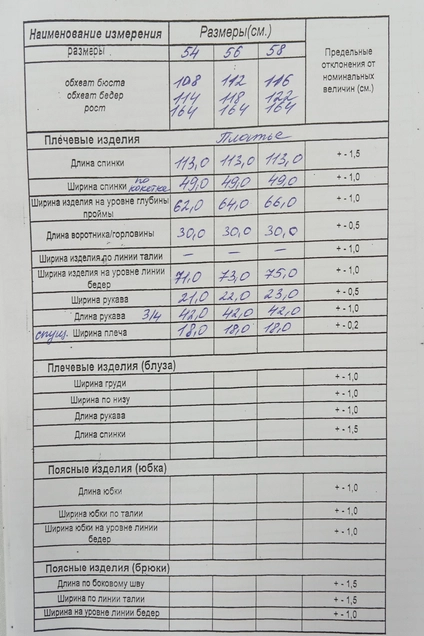 Наименование измерения Размеры(см.) Предельные отклонения от номинальных величин (см.)
размеры 54 56 58
обхват бюста 108 112 116
обхват бедер 114 118 122
рост 164 164 164
Плечевые изделия Платье
Длина спинки 113,0 113,0 113,0 + - 1,5
Ширина спинки по кокетке 49,0 49,0 49,0 + - 1,0
Ширина изделия на уровне глубины проймы 62,0 64,0 66,0 + - 1,0
Длина воротника/горловины 30,0 30,0 30,0 + - 0,5
Ширина изделия по линии талии – – – + - 1,0
Ширина изделия на уровне линии бедер 71,0 73,0 75,0 + - 1,0
Ширина рукава 21,0 22,0 23,0 + - 0,5
Длина рукава 3/4 42,0 42,0 42,0 + - 1,0
спущ. Ширина плеча 18,0 18,0 18,0 + - 0,2
Плечевые изделия (блуза)
Ширина груди + - 1,0
Ширина по низу + - 1,0
Длина рукава + - 1,0
Длина спинки + - 1,5
Поясные изделия (юбка)
Длина юбки + - 1,0
Ширина юбки по талии + - 1,0
Ширина юбки на уровне линии бедер + - 1,0
Поясные изделия (брюки)
Длина по боковому шву + - 1,5
Ширина по линии талии + - 1,5
Ширина на уровне линии бедер + - 1,0